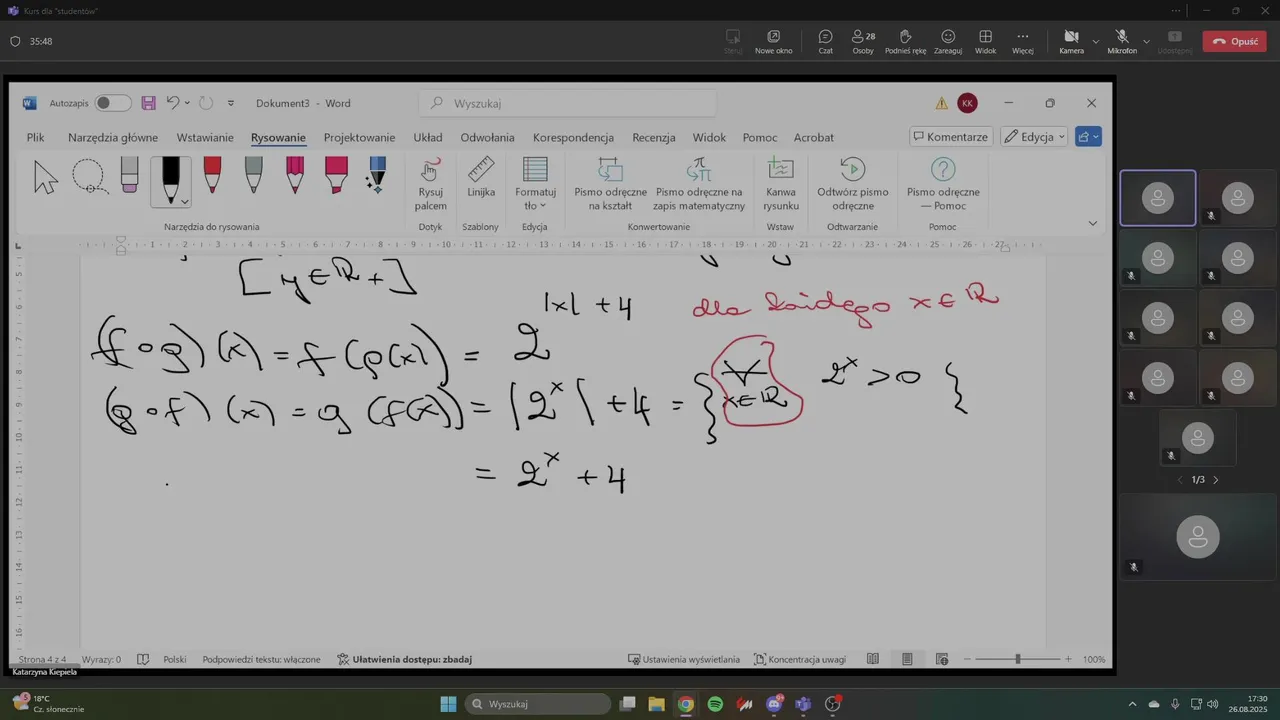 Kurs dla "studentów"
35:48
Steruj Nowe okno Czat Osoby 28 Podnieś rękę Zareaguj Widok Więcej Kamera Mikrofon Udostępnij Opuść
Autozapis Dokument3 - Word Wyszukaj KK
Plik Narzędzia główne Wstawianie Rysowanie Projektowanie Układ Odwołania Korespondencja Recenzja Widok Pomoc Acrobat Komentarze Edycja
Rysuj palcem Linijka Formatuj tło Pismo odręczne na kształt Pismo odręczne na zapis matematyczny Kanwa rysunku Odtwórz pismo odręczne Pismo odręczne — Pomoc
Narzędzia do rysowania Dotyk Szablony Edycja Konwertowanie Wstaw Odtwarzanie Pomoc
1 2 3 4 5 6 7 8 9 10 11 12 13 14 15 16 17 18 19 20 21 22 23 24 25 26 27
[y∈ℝ+]
dla każdego x∈ℝ
(f∘g)(x) = f(g(x)) = 2^(|x|+4)
(g∘f)(x) = g(f(x)) = |2^x| + 4 = { ∀ x∈ℝ 2^x > 0 }
= 2^x + 4
1/3
Strona 4 z 4 Wyrazy: 0 Polski Podpowiedzi tekstu: włączone Ułatwienia dostępu: zbadaj Ustawienia wyświetlania Koncentracja uwagi 100%
Katarzyna Kiepiela
5 18°C
Cz. słonecznie
Wyszukaj
17:30
26.08.2025